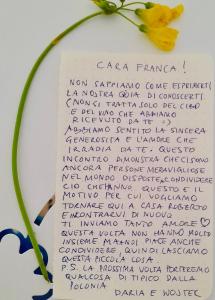 CARA FRANCA!
NON SAPPIAMO COME ESPRIMERTI
LA NOSTRA GIOIA DI CONOSCERTI
(NON SI TRATTA SOLO DEL CIBO
E DEL VINO CHE ABBIAMO
RICEVUTO DA TE :)
ABBIAMO SENTITO LA SINCERA
GENEROSITÀ E L'AMORE CHE
IRRADIA DA TE. QUESTO
INCONTRO DIMOSTRA CHE CI SONO
ANCORA PERSONE MERAVIGLIOSE
NEL MONDO DISPOSTE A CONDIVIDERE
CIÒ CHE HANNO. QUESTO È IL
MOTIVO PER CUI VOGLIAMO
TORNARE QUI A CASA ROBERTO
E INCONTRARVI DI NUOVO
TI INVIAMO TANTO AMORE ♡
QUESTA VOLTA NON HANNO MOLTO
INSIEME MA A NOI PIACE ANCHE
CONDIVIDERE, QUINDI LASCIAMO
QUESTA PICCOLA COSA.
P.S. LA PROSSIMA VOLTA PORTEREMO
QUALCOSA DI TIPICO DALLA
POLONIA
DARIA E WOJTEC